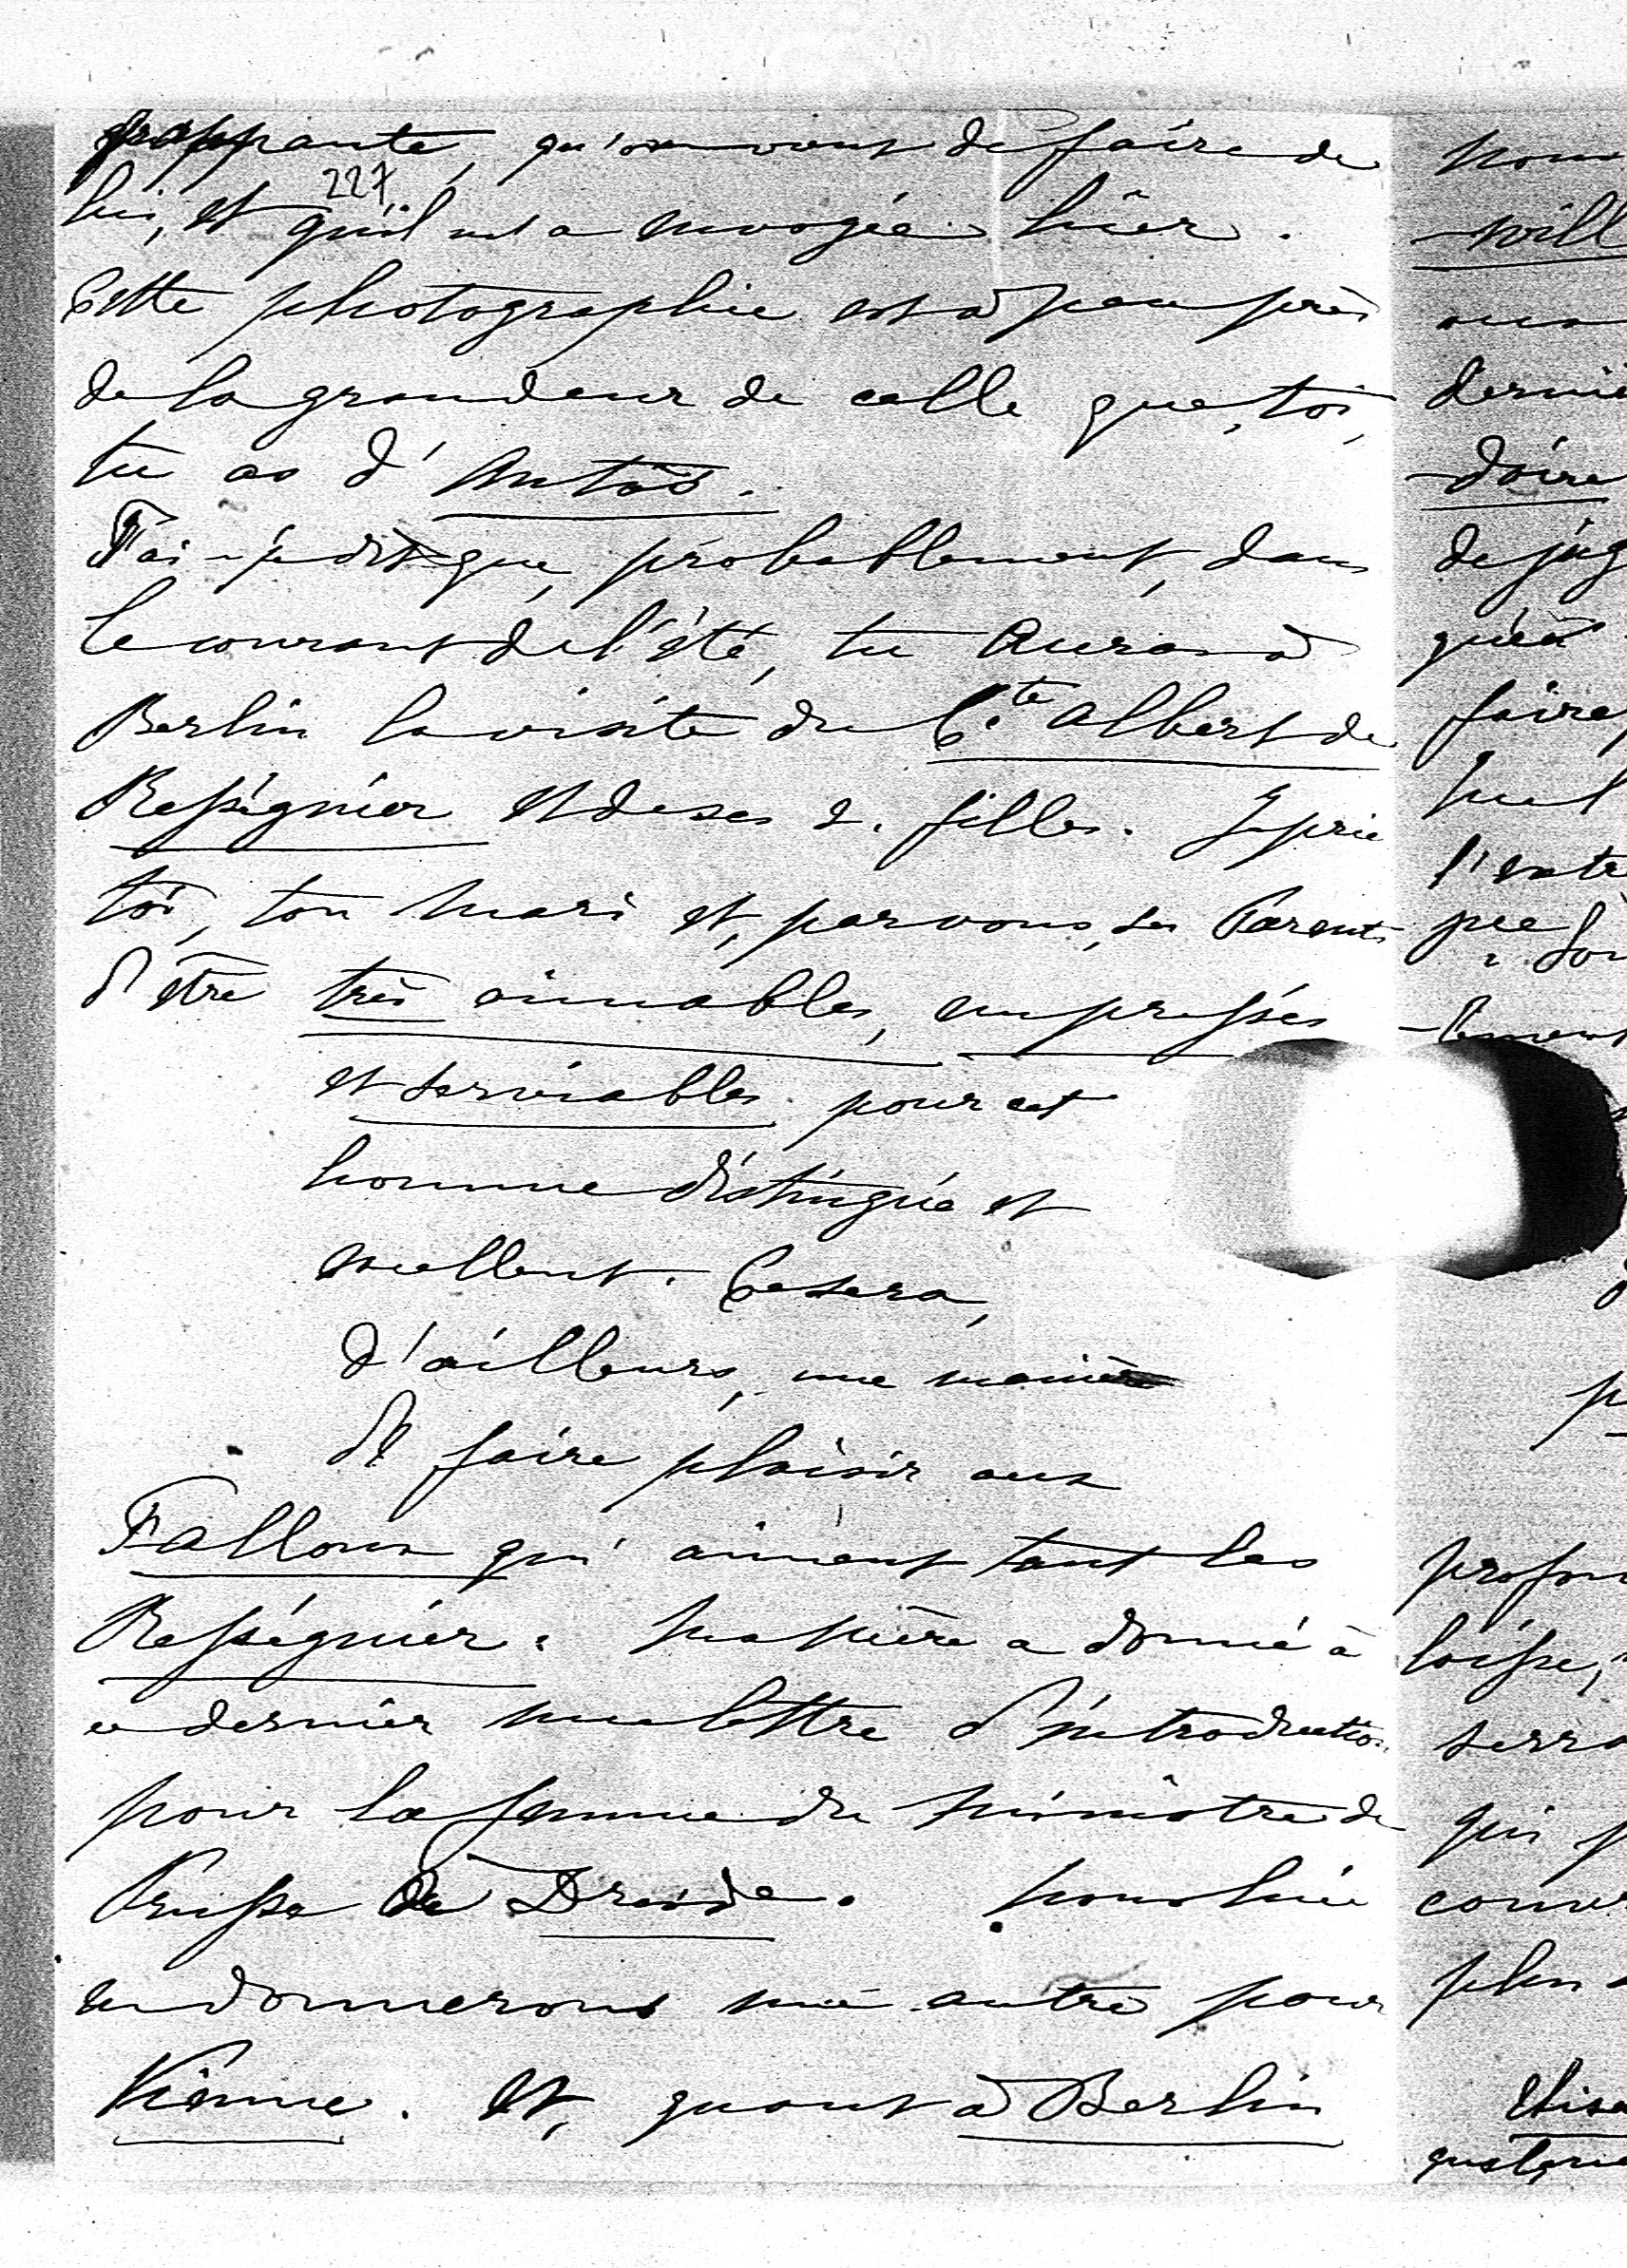 frappante, qu'on vient de faire de
227
lui, et qu'il m'a envoyée hier.
Cette photographie est à peu près
de la grandeur de celle que, toi,
tu as d'Antos.
T'ai-je dit que, probablement, dans
le courant de l'été, tu auras à
Berlin la visite du Cte Albert de
Rességuier et de ses 2. filles. Je prie
toi, ton mari et, par vous, les Parents
d'être très aimables, empressés
et serviables pour cet
homme distingué et
excellent. Ce sera,
d'ailleurs, une manière
de faire plaisir aux
Falloux qui aiment tant les
Rességuier. Ma mère a donné à
ce dernier une lettre d'introduction
pour la femme du ministre de
Prusse de Dresde. Nous lui
en donnerons une autre pour
Vienne. Et, quant à Berlin
nous
-will
dernié
-doire
de jug
qu'en
faire
l'entr
profon
loisse,
serra
qui p
conve
plus
Elisa